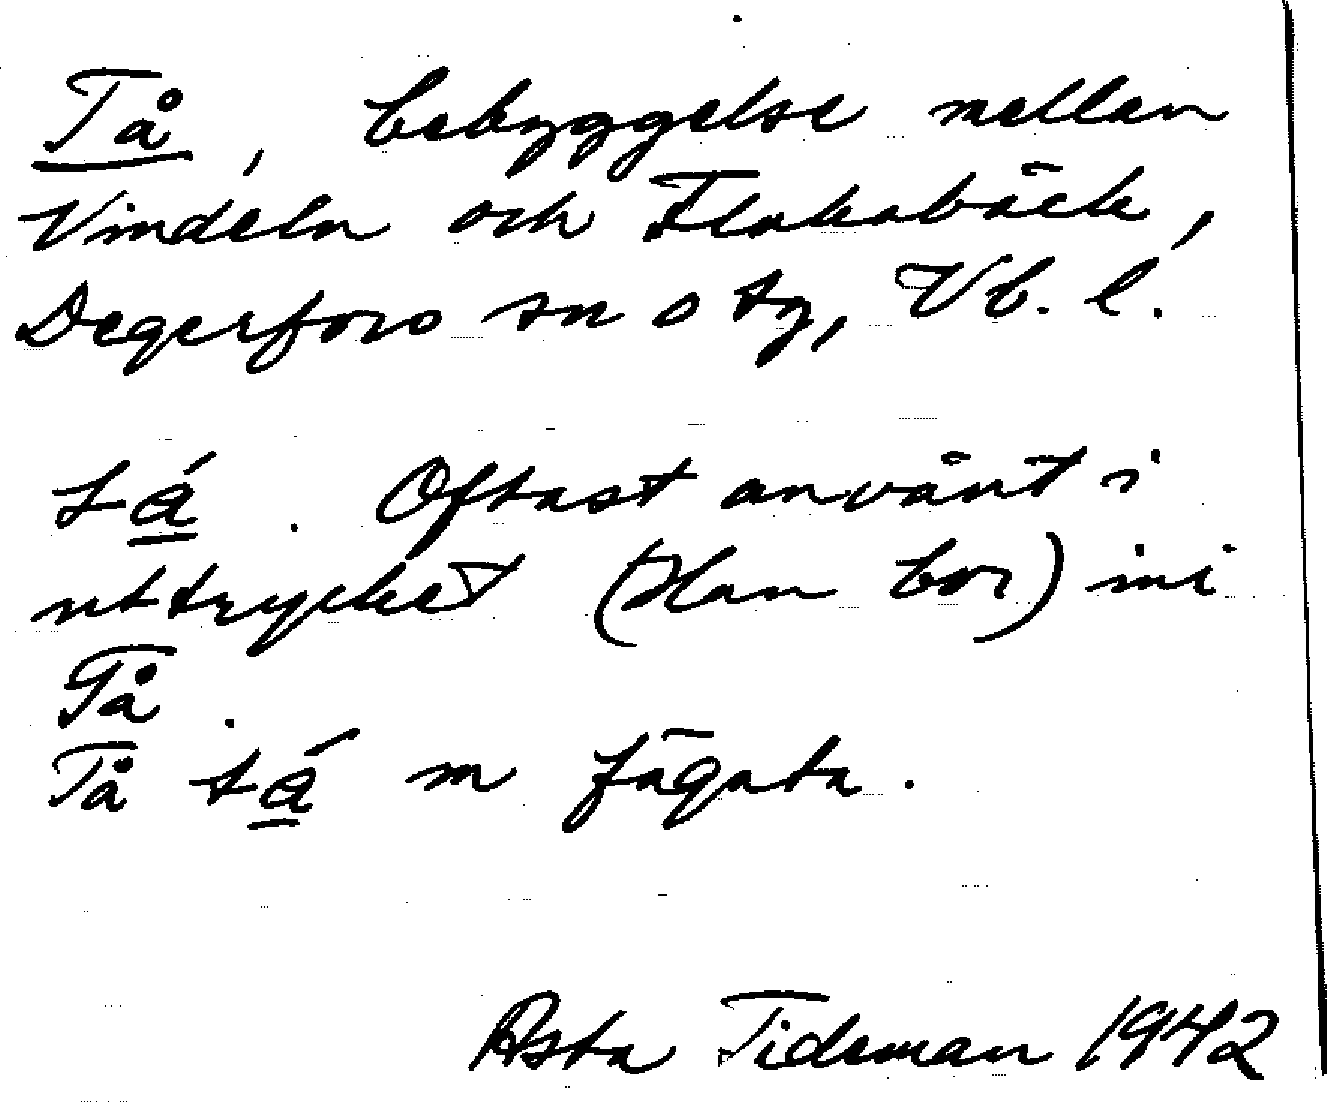 Tå, bebyggelse mellan
Vindeln och Flakabäck,
Degerfors sn o tg, Vb. l.
tá̲. Oftast använt i
uttrycket (Han bor) ini
Tå.
Tå tá̲ m fägata.
Asta Tideman 1942